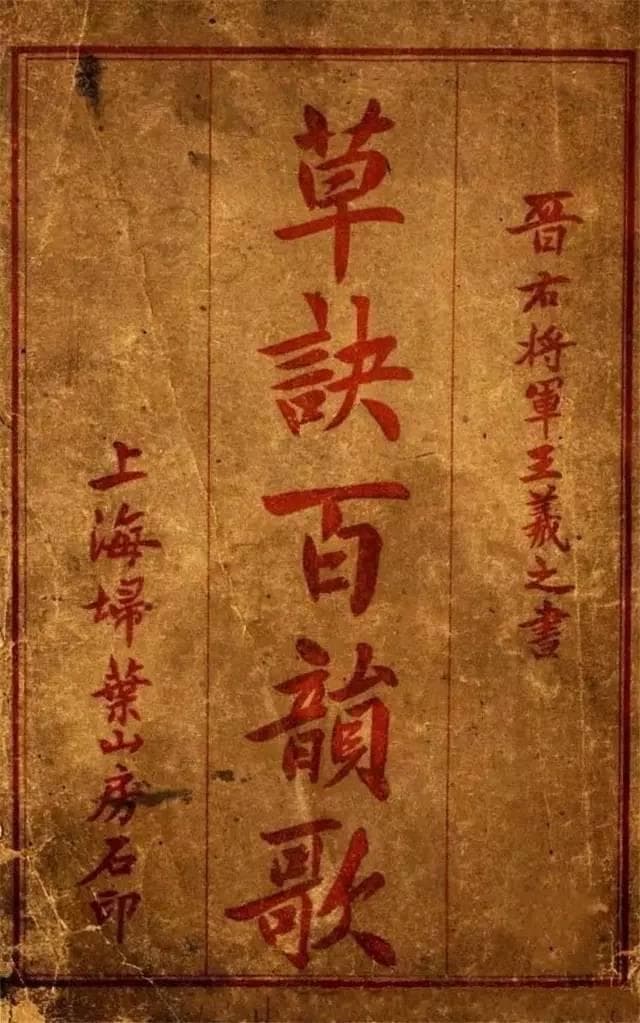 晋右将軍王羲之書
草訣百韻歌
上海埽葉山房石印